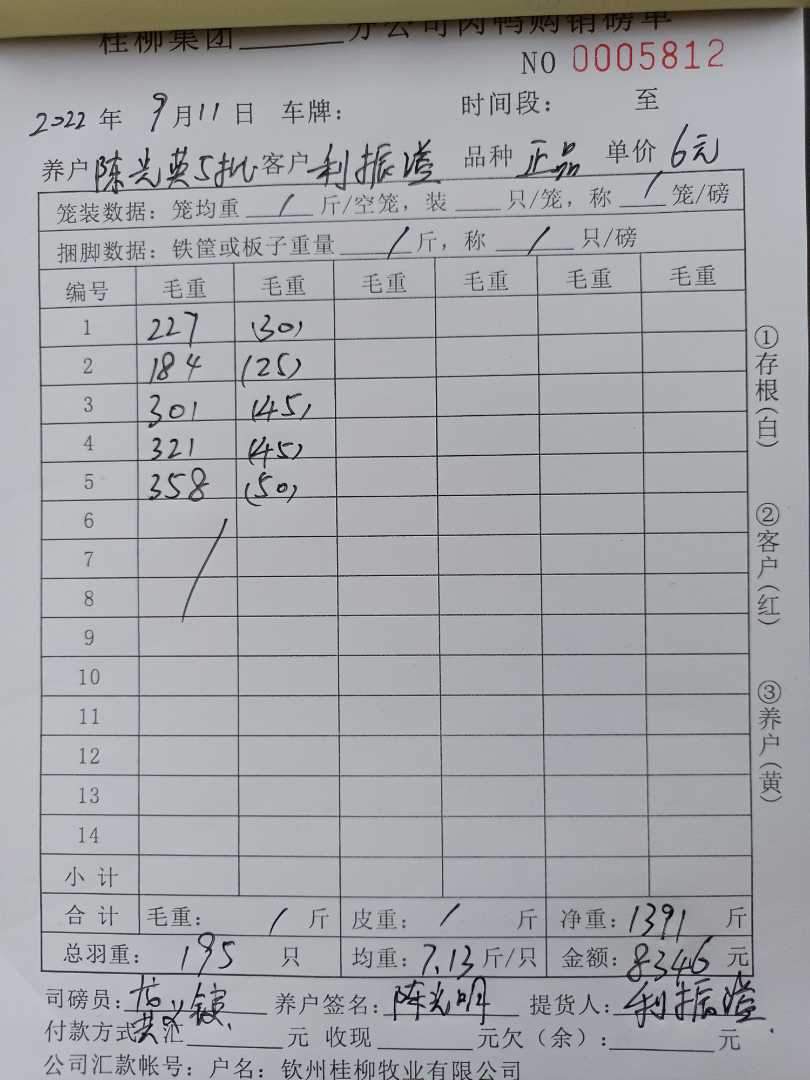 桂柳集团______分公司肉鸭购销磅单
NO 0005812
2022年 9月11日 车牌： 时间段： 至
养户 陈光英5批 客户 利振溢 品种 正品 单价 6元
笼装数据：笼均重 / 斤/空笼，装 ___ 只/笼，称 / 笼/磅
捆脚数据：铁筐或板子重量 / 斤，称 / 只/磅
编号 毛重 毛重 毛重 毛重 毛重 毛重
1 227 (30)
2 184 (25)
3 301 (45)
4 321 (45)
5 358 (50)
6
7
8
9
10
11
12
13
14
小计
合计 毛重： / 斤 皮重： / 斤 净重：1391 斤
总羽重： 195 只 均重：7.13斤/只 金额：8346元
司磅员： 养户签名：陈光明 提货人：利振溢
付款方式：汇______元 收现______元欠（余）：______元
公司汇款帐号：户名：钦州桂柳牧业有限公司
①存根(白)
②客户(红)
③养户(黄)